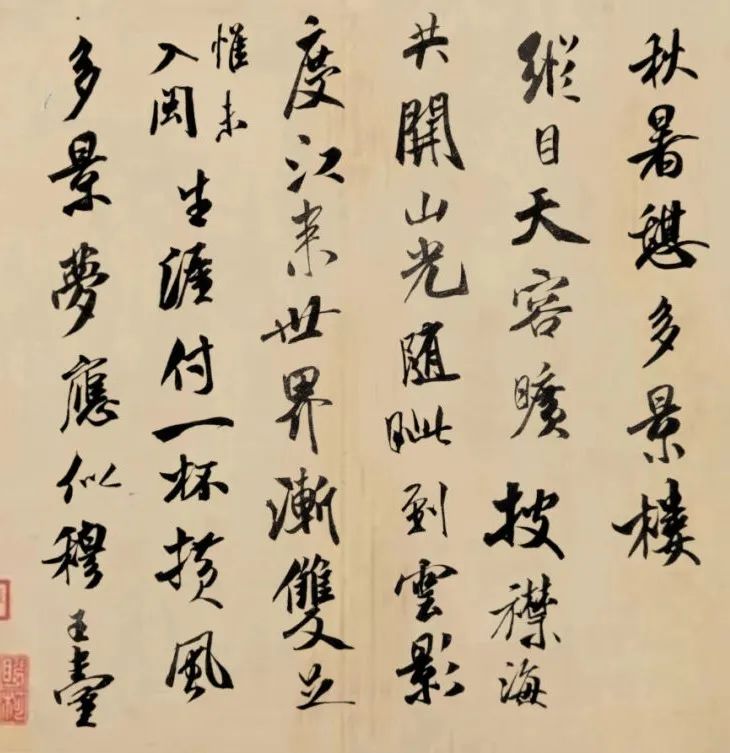 秋暑憩多景樓
縱目天容曠披襟海
共開山光随眦到雲影
度江来世界漸雙足
惟未
入閩
生涯付一杯撗風
多景夢應似穆王臺